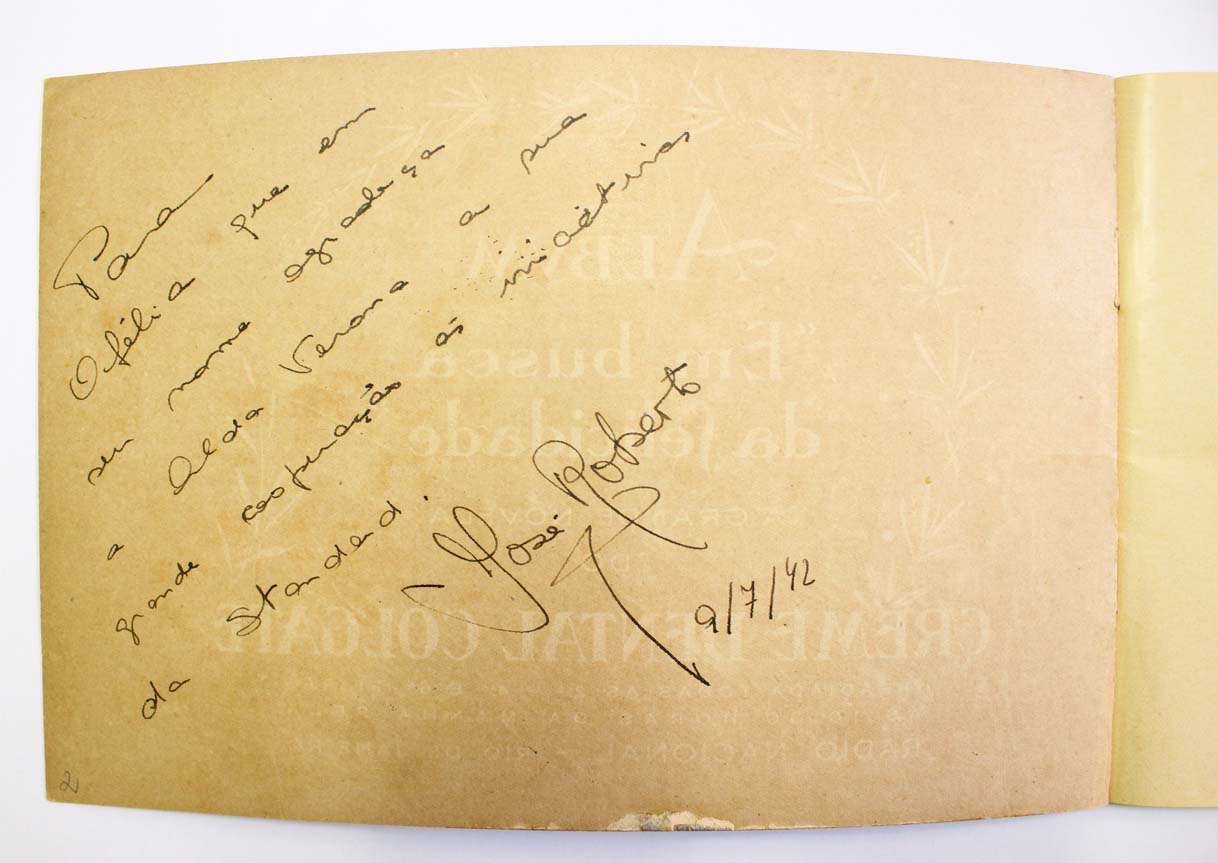 Para
Ofélia que em
seu nome agradeça
a Alda Verona a sua
grande cooperação ás iniciativas
da Standard.
José Roberto
9/7/42
2
ALBUM
"Em busca
da felicidade
CREME DENTAL COLGATE
RADIO NACIONAL - RIO DE JANEIRO